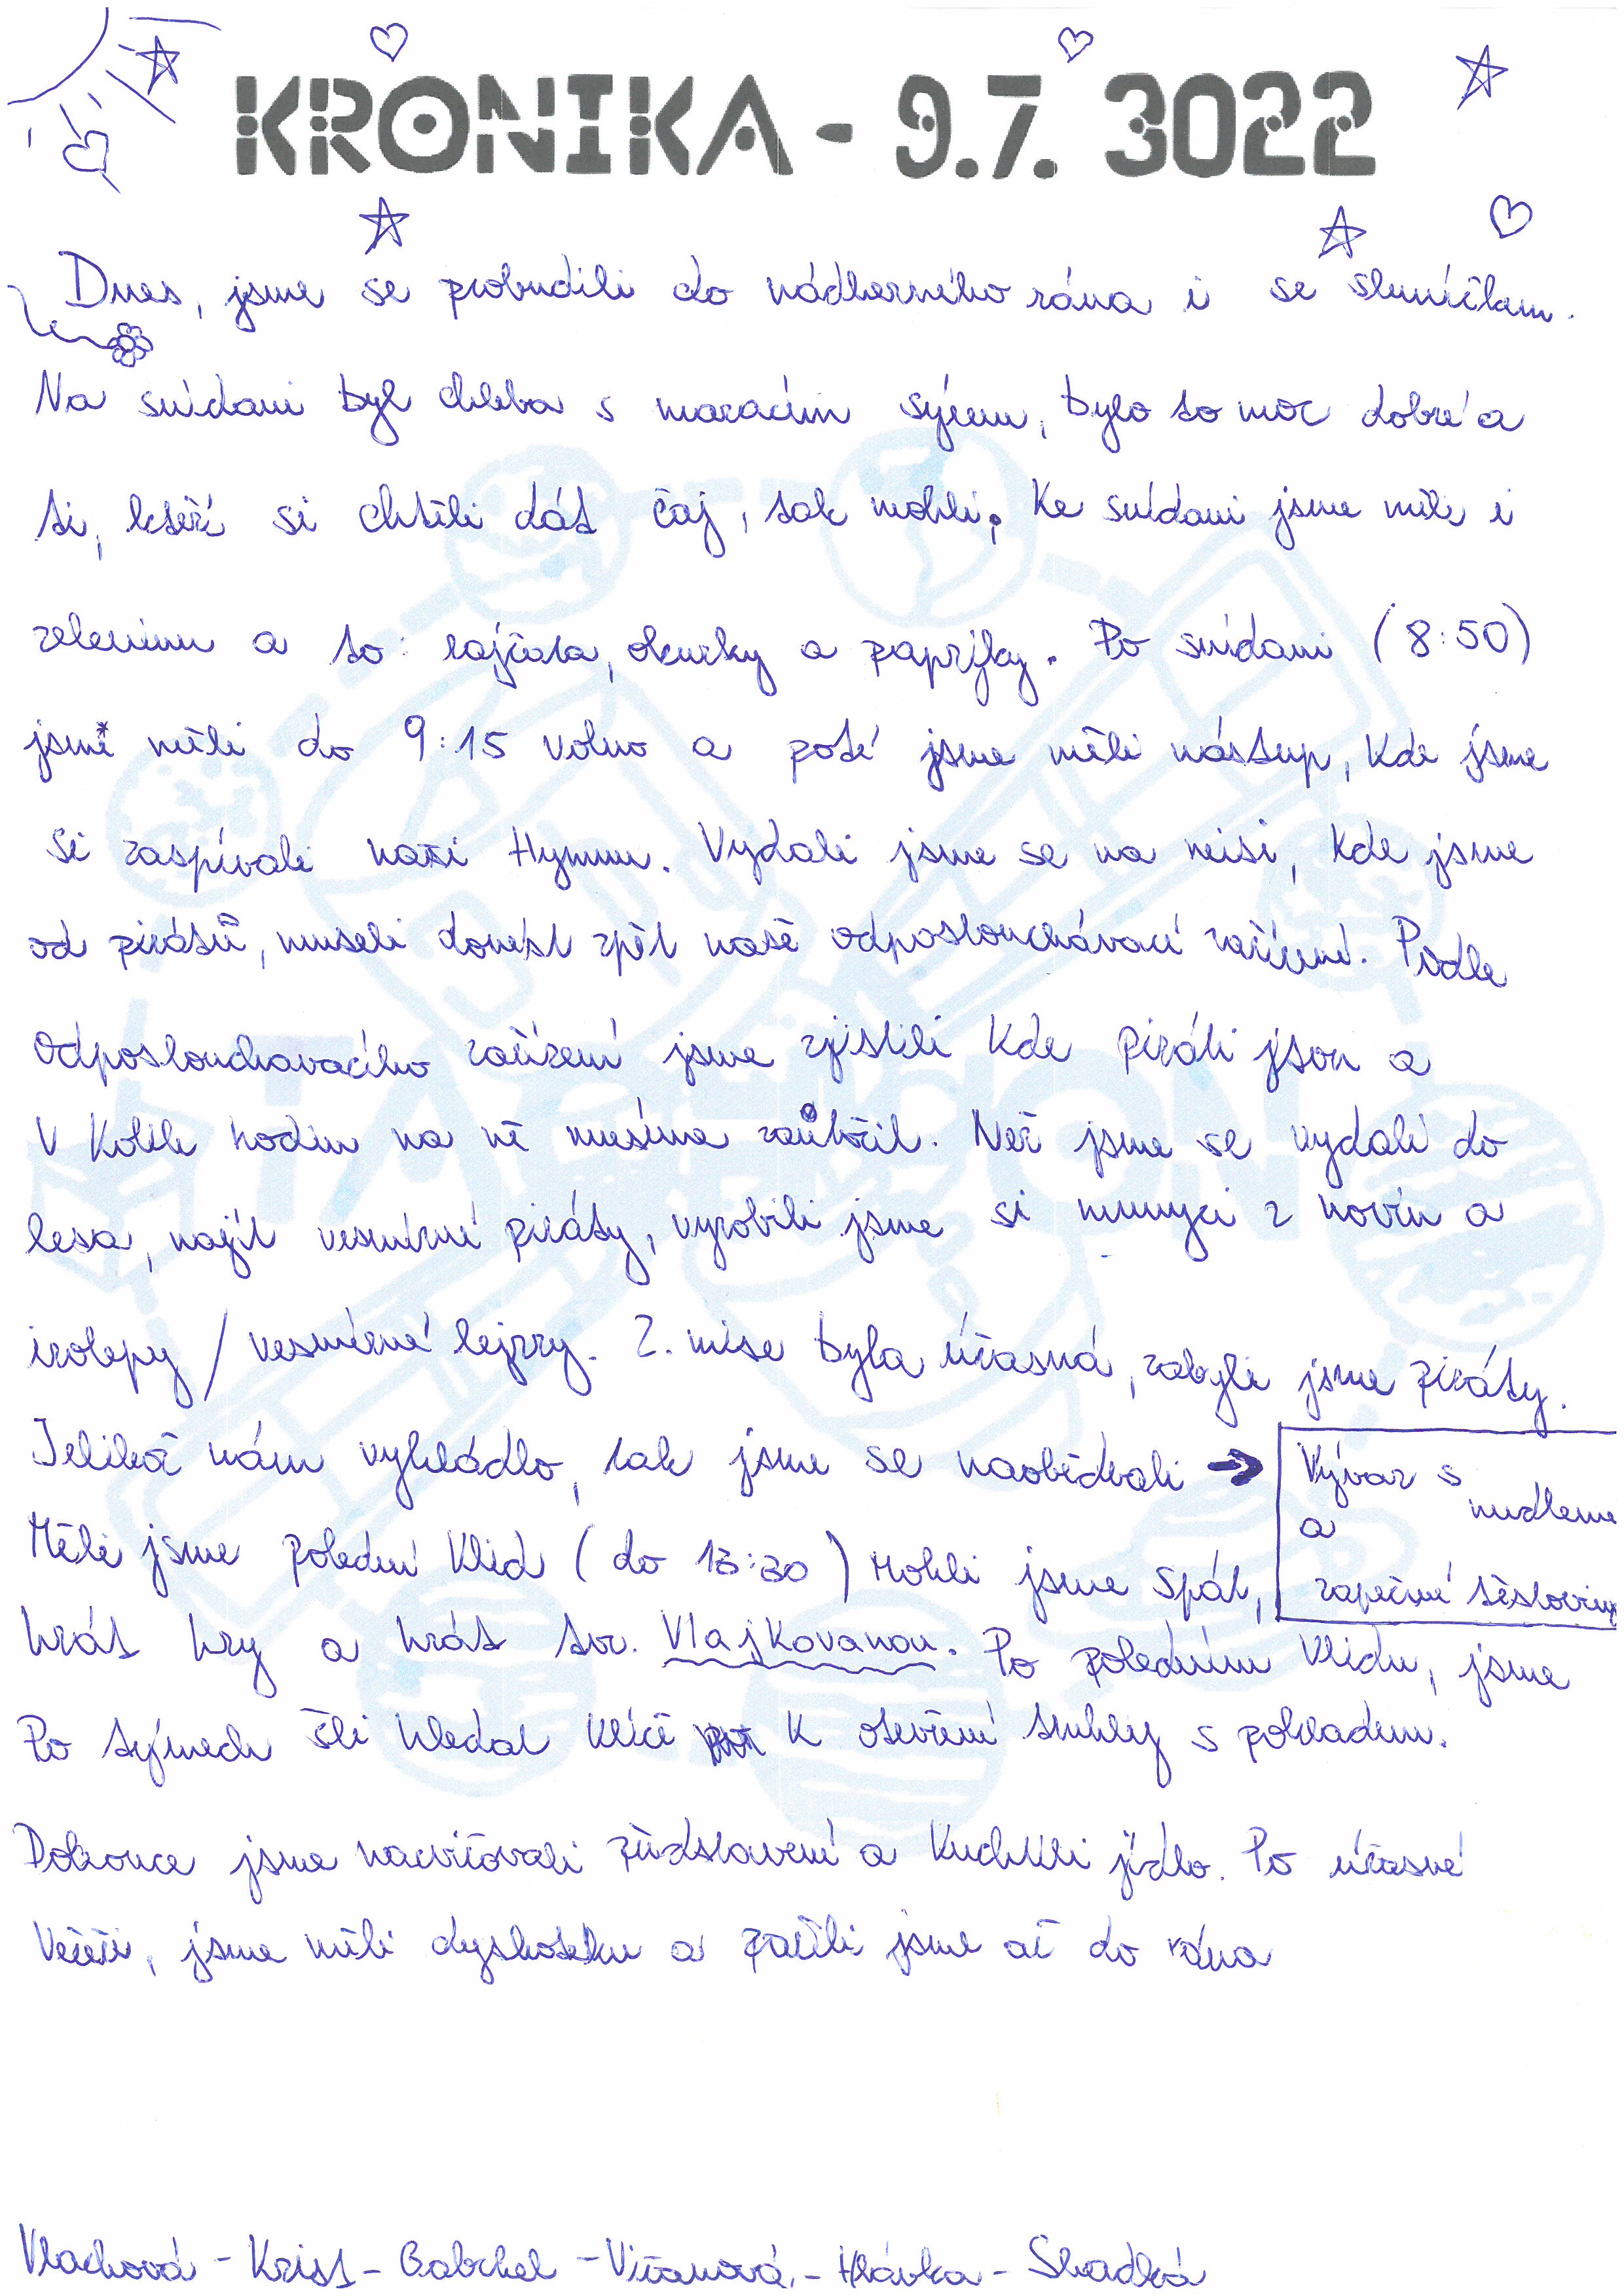 KRONIKA - 9.7. 3022
Dnes, jsme se probudili do nádherného rána i se sluníčkem.
Na snídani byl chleba s mazacím sýrem, bylo to moc dobré a
ti, kteří si chtěli dát čaj, tak mohli. Ke snídani jsme měli i
zeleninu a to: rajčata, okurky a papriky. Po snídani (8:50)
jsme měli do 9:15 volno a poté jsme měli nástup, kde jsme
si zaspívali naši Hymnu. Vydali jsme se na misi, kde jsme
od pirátů, museli donést zpět naše odposlouchávací zařízení. Podle
odposlouchavacího zařízení jsme zjistili kde piráti jsou a
v kolik hodin na ně musíme zaůtočit. Než jsme se vydali do
lesa, najít vesmírné piráty, vyrobili jsme si munyci z novin a
izolepy / vesmírné lejzry. 2. mise byla úžasná, zabyli jsme piráty.
Jelikož nám vyhládlo, tak jsme se naobědvali → Vývar s nudlema
a
zapečené těstoviny
Měli jsme polední klid (do 13:30) Mohli jsme spát,
hrát hry a hrát tzv. Vlajkovanou. Po poledním klidu, jsme
Po týmech šli hledat klíč k otevření truhly s pokladem.
Dokonce jsme nacvičovali představení a kuchtili jídlo. Po úžasné
Večeři, jsme měli dyskotéku a pařili jsme až do rána
Vlachová - Krist - Gabrhel - Vižanová - Hlávka - Sladká